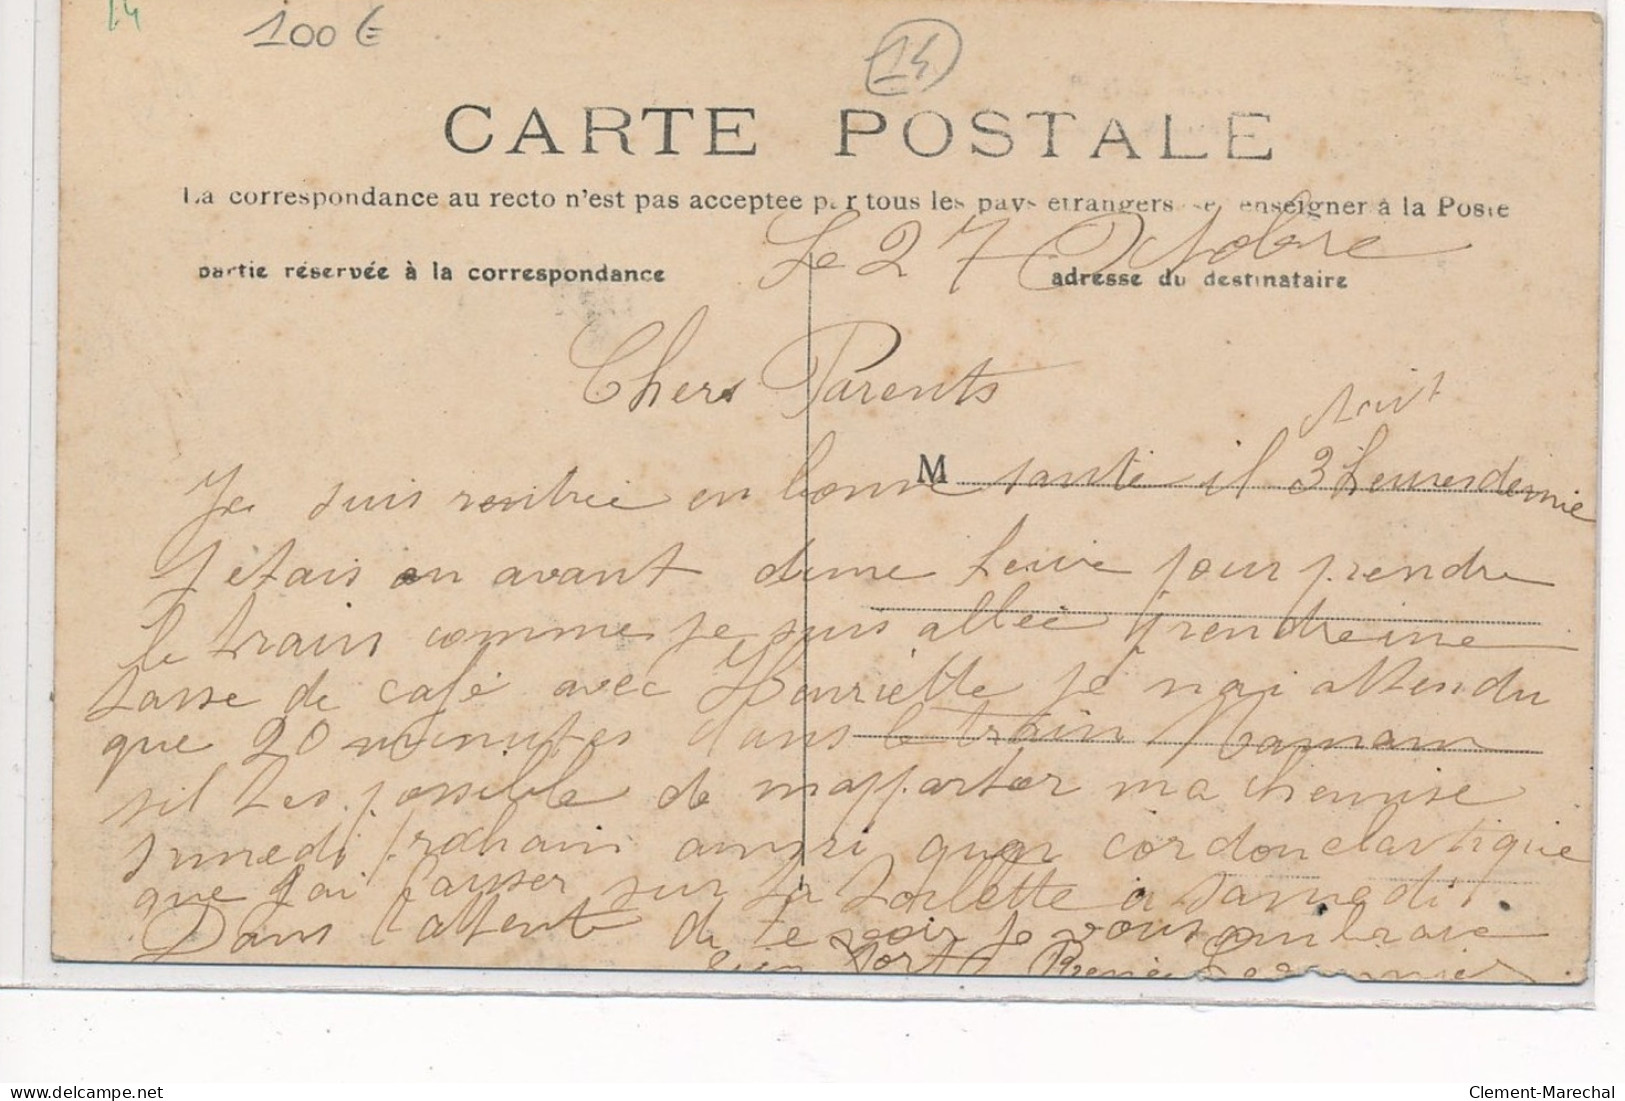 14
100 €
14
CARTE POSTALE
La correspondance au recto n'est pas acceptee par tous les pays etrangers se enseigner à la Poste
partie réservée à la correspondance
adresse du destinataire
Le 27 Octobre
Chers Parents
M
Je suis rentrée en bonne santé il 3 heures demie
J etais en avant dune heure pour prendre
le train comme je suis allée prendre une
tasse de café avec Henriette je n ai attendu
que 20 minutes dans le train Maman
sil tes possible de mapporter ma chemise
samedi prochain ainsi que cordon elastique
que jai laisser sur la toilette a samedi
Dans l attente de te voir je vous embrasse
bien fort Renée
Clement-Marechal
delcampe.net